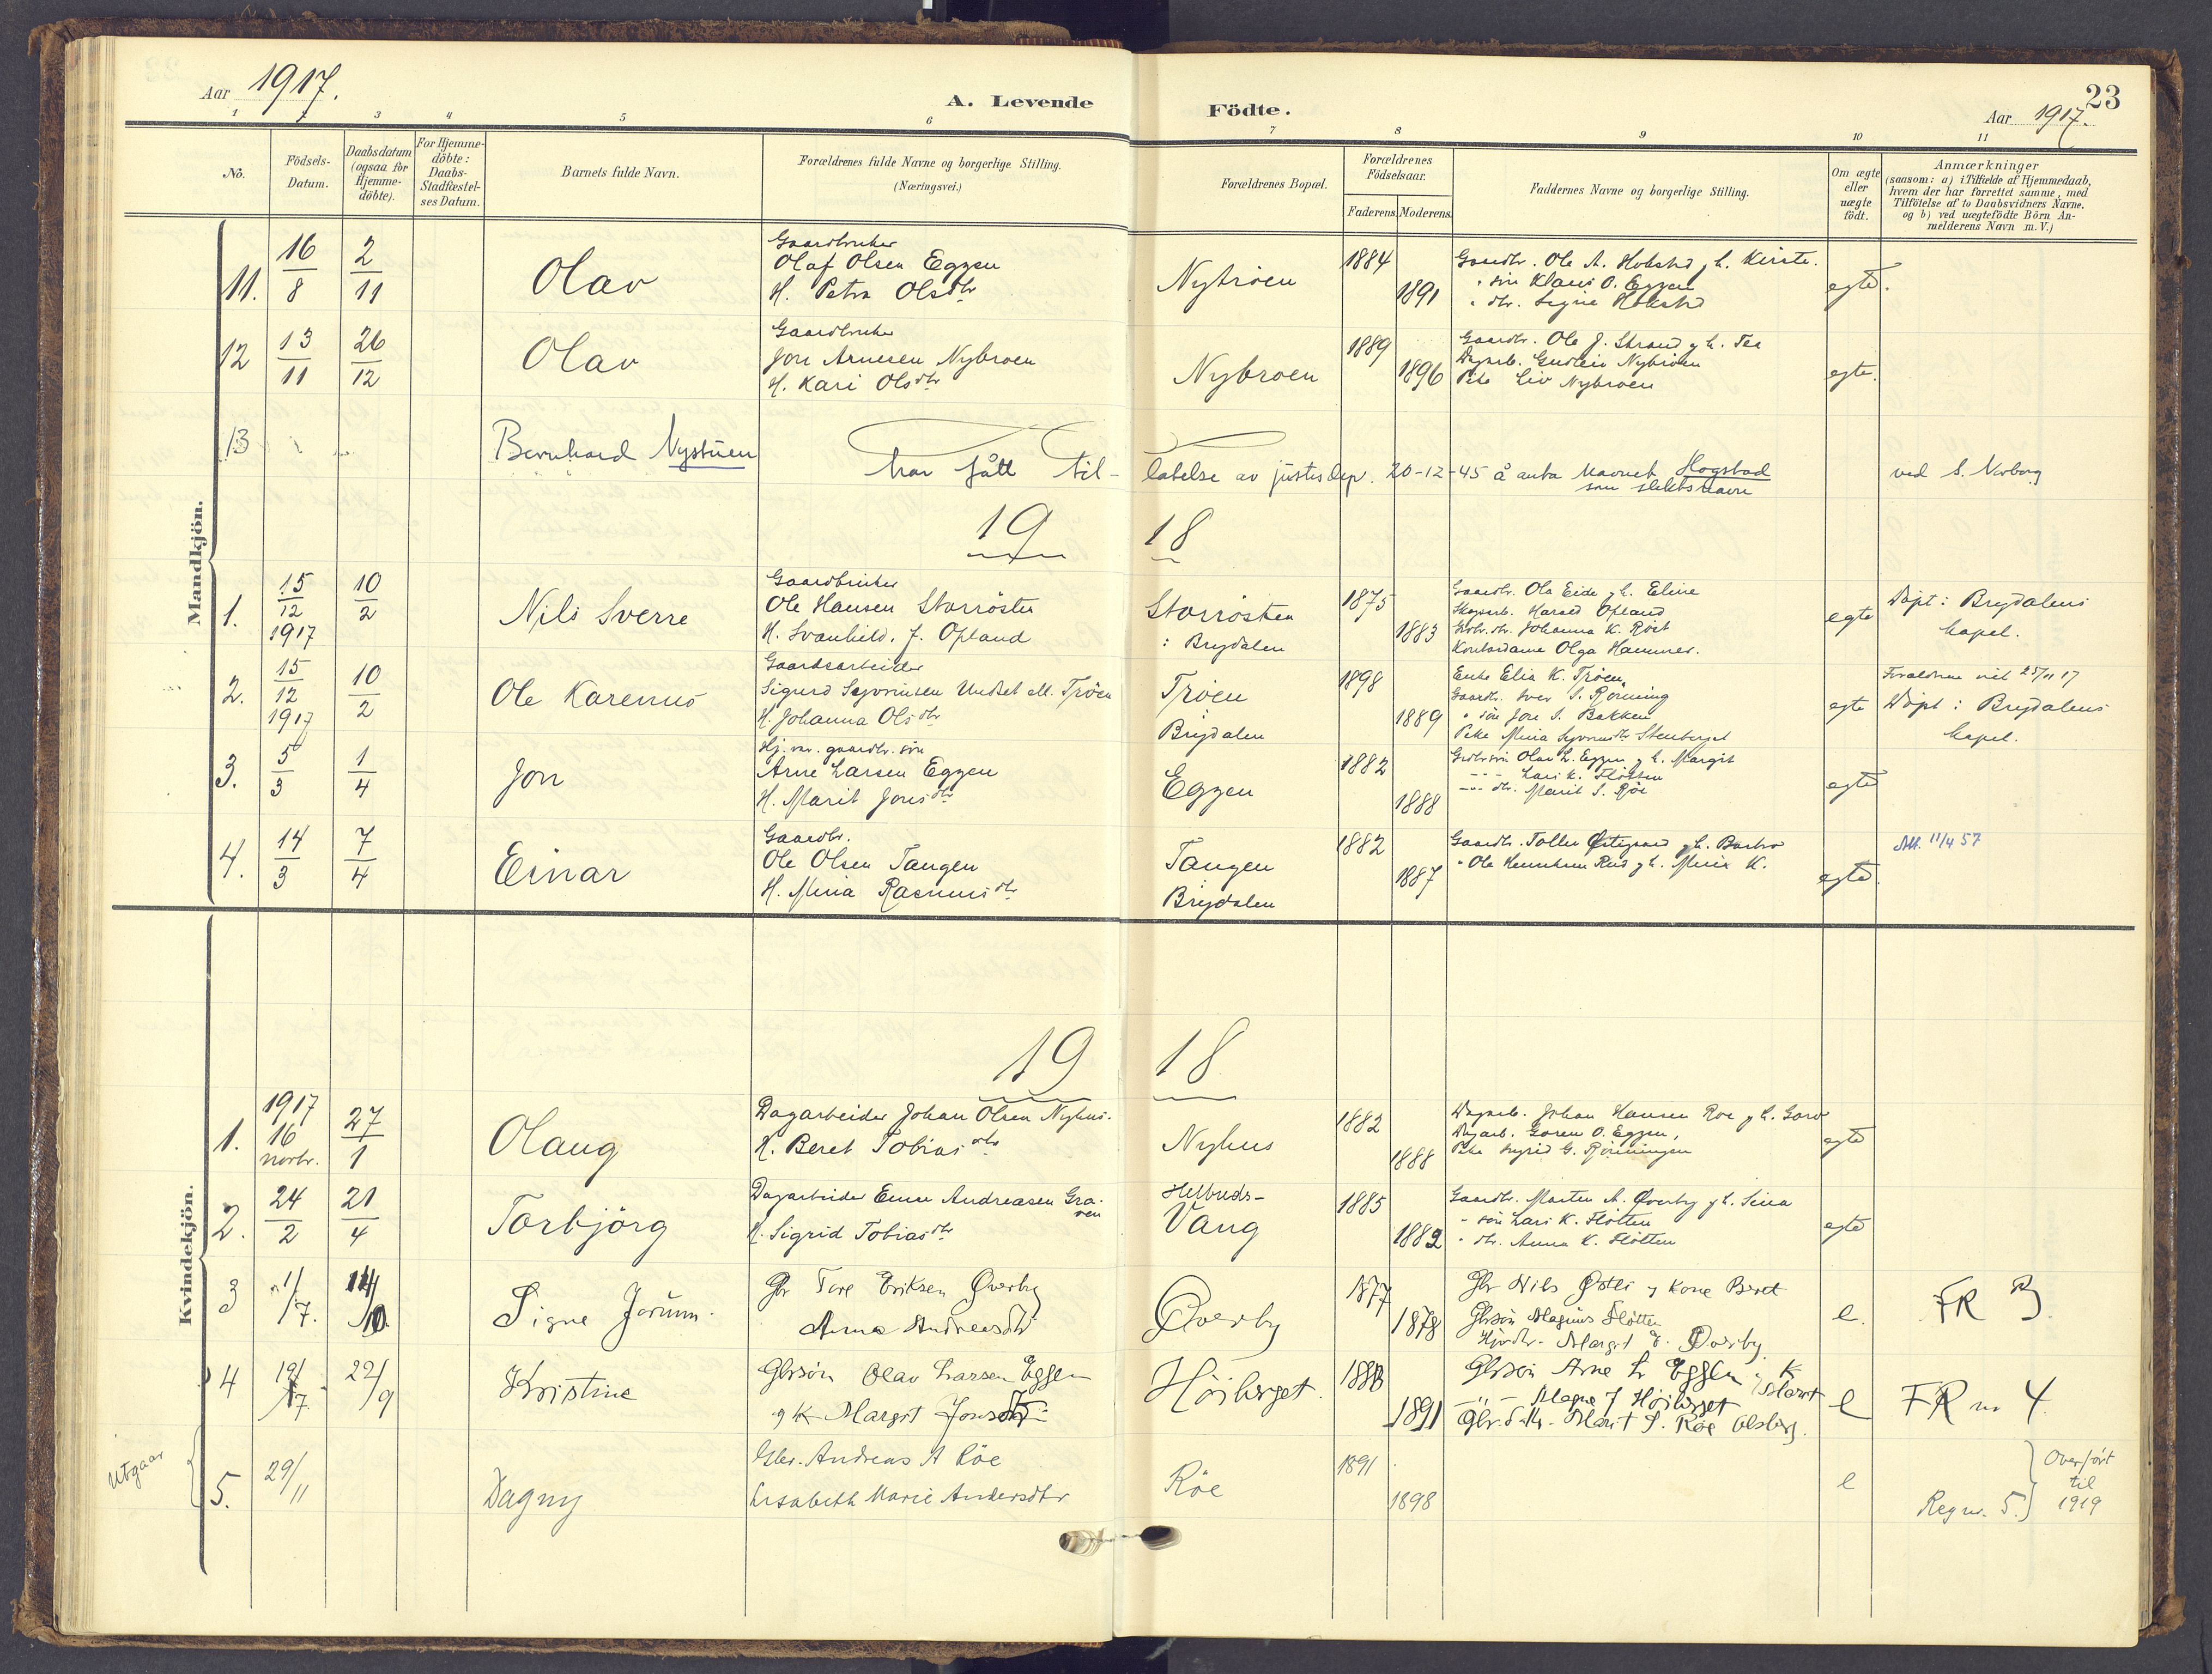 Aar 1917.
A. Levende Födte.
23
Aar 1917.
1 2 3 4 5 6 7 8 9 10 11
No.
Födsels-Datum.
Daabsdatum (ogsaa for Hjemme-döbte).
For Hjemme-döbte: Daabs-Stadfæstel-ses Datum.
Barnets fulde Navn.
Forældrenes fulde Navne og borgerlige Stilling.
(Næringsvei.)
Forældrenes Bopæl.
Forældrenes Födselsaar.
Faderens. Moderens.
Faddernes Navne og borgerlige Stilling.
Om ægte eller uægte födt.
Anmærkninger
(saasom: a) i Tilfælde af Hjemmedaab,
hvem der har forrettet samme, med
Tilföielse af to Daabsvidners Navne,
og b) ved uægtefödte Börn An-
melderens Navn m.V.)
Mandkjön.
11. 16/8 2/11 Olav
Gaardbruker
Olaf Olsen Eggen
H. Petra Olsdtr
Nybroen 1884 1891
Gaardbr. Ole A. Hokstad g h. Kirste.
" sön Klaus O. Eggen
" dtr. Signe Hokstad
egte.
12 13/11 26/12 Olav
Gaardbruker
Jon Arnesen Nybroen
H. Kari Olsdtr
Nybroen 1889 1896
Gaardbr. Ole J. Strand g h. Tea
Dagarb. Gudleiv Nybroen
Pike Liv Nybroen
egte.
13
Bernhard Nystuen har fått til-latelse av justisdep. 20-12-45 å anta navnet Hogstad
som slektsnavn
ved S. Norborg
1918
1. 15/12 1917 10/2 Nils Sverre
Gaardbruker
Ole Hansen Storrösten
H. Svanhild. J. Opland
Storrösten
: Brydalen
1875 1883
Gaardbr. Ola Eide g h. Eline
Skogsarb. Harald Opland
Gbr. dtr. Johanna K. Röst
Kontordame Olga Hammer.
egte
Döpt i Brydalens
kapel.
2. 15/12 1917 10/2 Ole Karenus
Gaardsarbeider
Sigurd Syversen Undset ell. Tröen
H. Johanna Olsdtr
Tröen
Brydalen
1898 1889
Enke Elia K. Tröen
Gaardbr. Iver S. Rönning
" sön Jon S. Bakken
Pike Mina Syversdtr Stenberget
egte
Forældrene viet 25/11 17
Döpt i Brydalens
kapel.
3. 5/3 1/4 Jon
Hj. vær. gaardbr. sön
Arne Larsen Eggen
H. Marit Jonsdtr
Eggen 1882 1888
Gbr sön Olav L. Eggen g h. Margit
" - Lars K. Flötten
" dtr. Marit S. Röe
egte
4. 14/3 7/4 Einar
Gaardbr.
Ole Olsen Tangen
H. Mina Rasmusdtr
Tangen
Brydalen
1882 1887
Gaardbr. Tollev Östigaard g h. Barbro
" Ole Hennum Rud g h. Mina K.
egte.
Att. 11/4 57
Kvindekjön.
1918
1. 1917 16 novbr. 27/1 Olaug
Dagarbeider Johan Olsen Nyhus.
H. Beret Tobiasdtr
Nyhus 1882 1888
Dagarb. Johan Hansen Roe g h. Goro
Dagarb. Goren O. Eggen,
Pike Ingrid G. Rönningen
egte
2. 24/2 21/4 Torbjörg
Dagarbeider Einar Andreasen Gra-
ven
H. Sigrid Tobiasdtr
Helbreds-
Vang
1885 1882
Gaardbr. Morten A. Överby g h. Sina
" sön Lars K. Flötten
" dtr. Anna K. Flötten
egte
3 1/7. 14/10 Signe Jorunn.
Gbr Tore Eriksen Överby
Anna Andreasdtr
Överby 1877 1878
Gbr Nils Östli g kone Beret
Gbrsön Magnus Flötten
Margit E. Överby.
e.
FR 3
4 19/7 22/9 Kristine
Gbrsön Olav Larsen Eggen
g K Margit Jonsdtr
Höiberget. 1888 1891
Gbrsön Arne L Eggen g K Marit
- " - Magne J Höiberget
Gbr. dtr. Marit S. Röe Olsberg.
e
FR nr 4
Utgaar
5. 29/11 Dagny
Gbr. Andreas A Röe
Lisabeth Marie Andersdtr
Röe 1891 1898
e
Reg nr. 5.
Overfört
til
1919